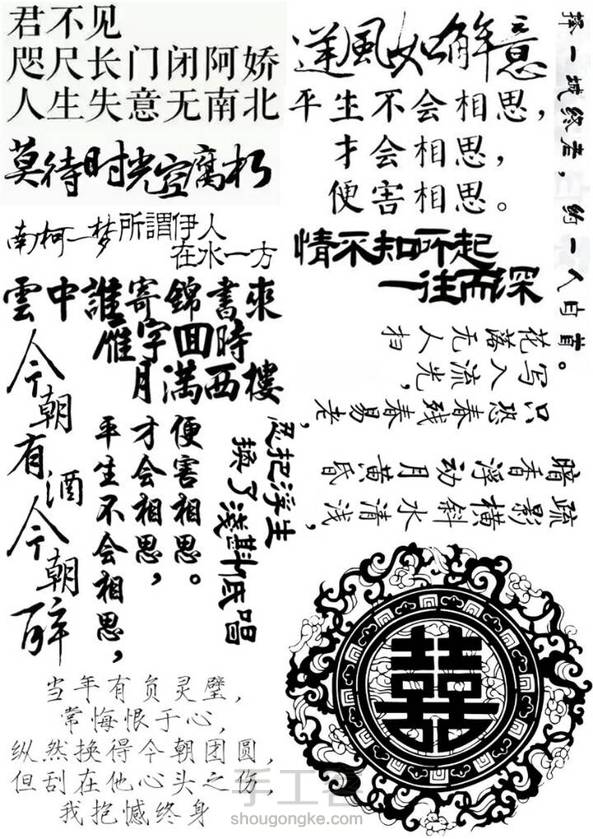 君不见
咫尺长门闭阿娇
人生失意无南北
莫待时光空腐朽
南柯一梦
所謂伊人
在水一方
雲中誰寄錦書來
雁字回時
月滿西樓
今朝有酒今朝醉
平生不会相思，
才会相思，
便害相思。
忍把浮生
換了淺斟低唱
当年有负灵璧，
常悔恨于心，
纵然换得今朝团圆，
但刮在他心头之伤，
我抱憾终身
逆風如解意
平生不会相思，
才会相思，
便害相思。
情不知所起
一往而深
择一城终老，约一人白首。
花落无人扫
写入流光，
只恐残春易老，
疏影横斜水清浅，
暗香浮动月黄昏
囍
手工客
shougongke.com